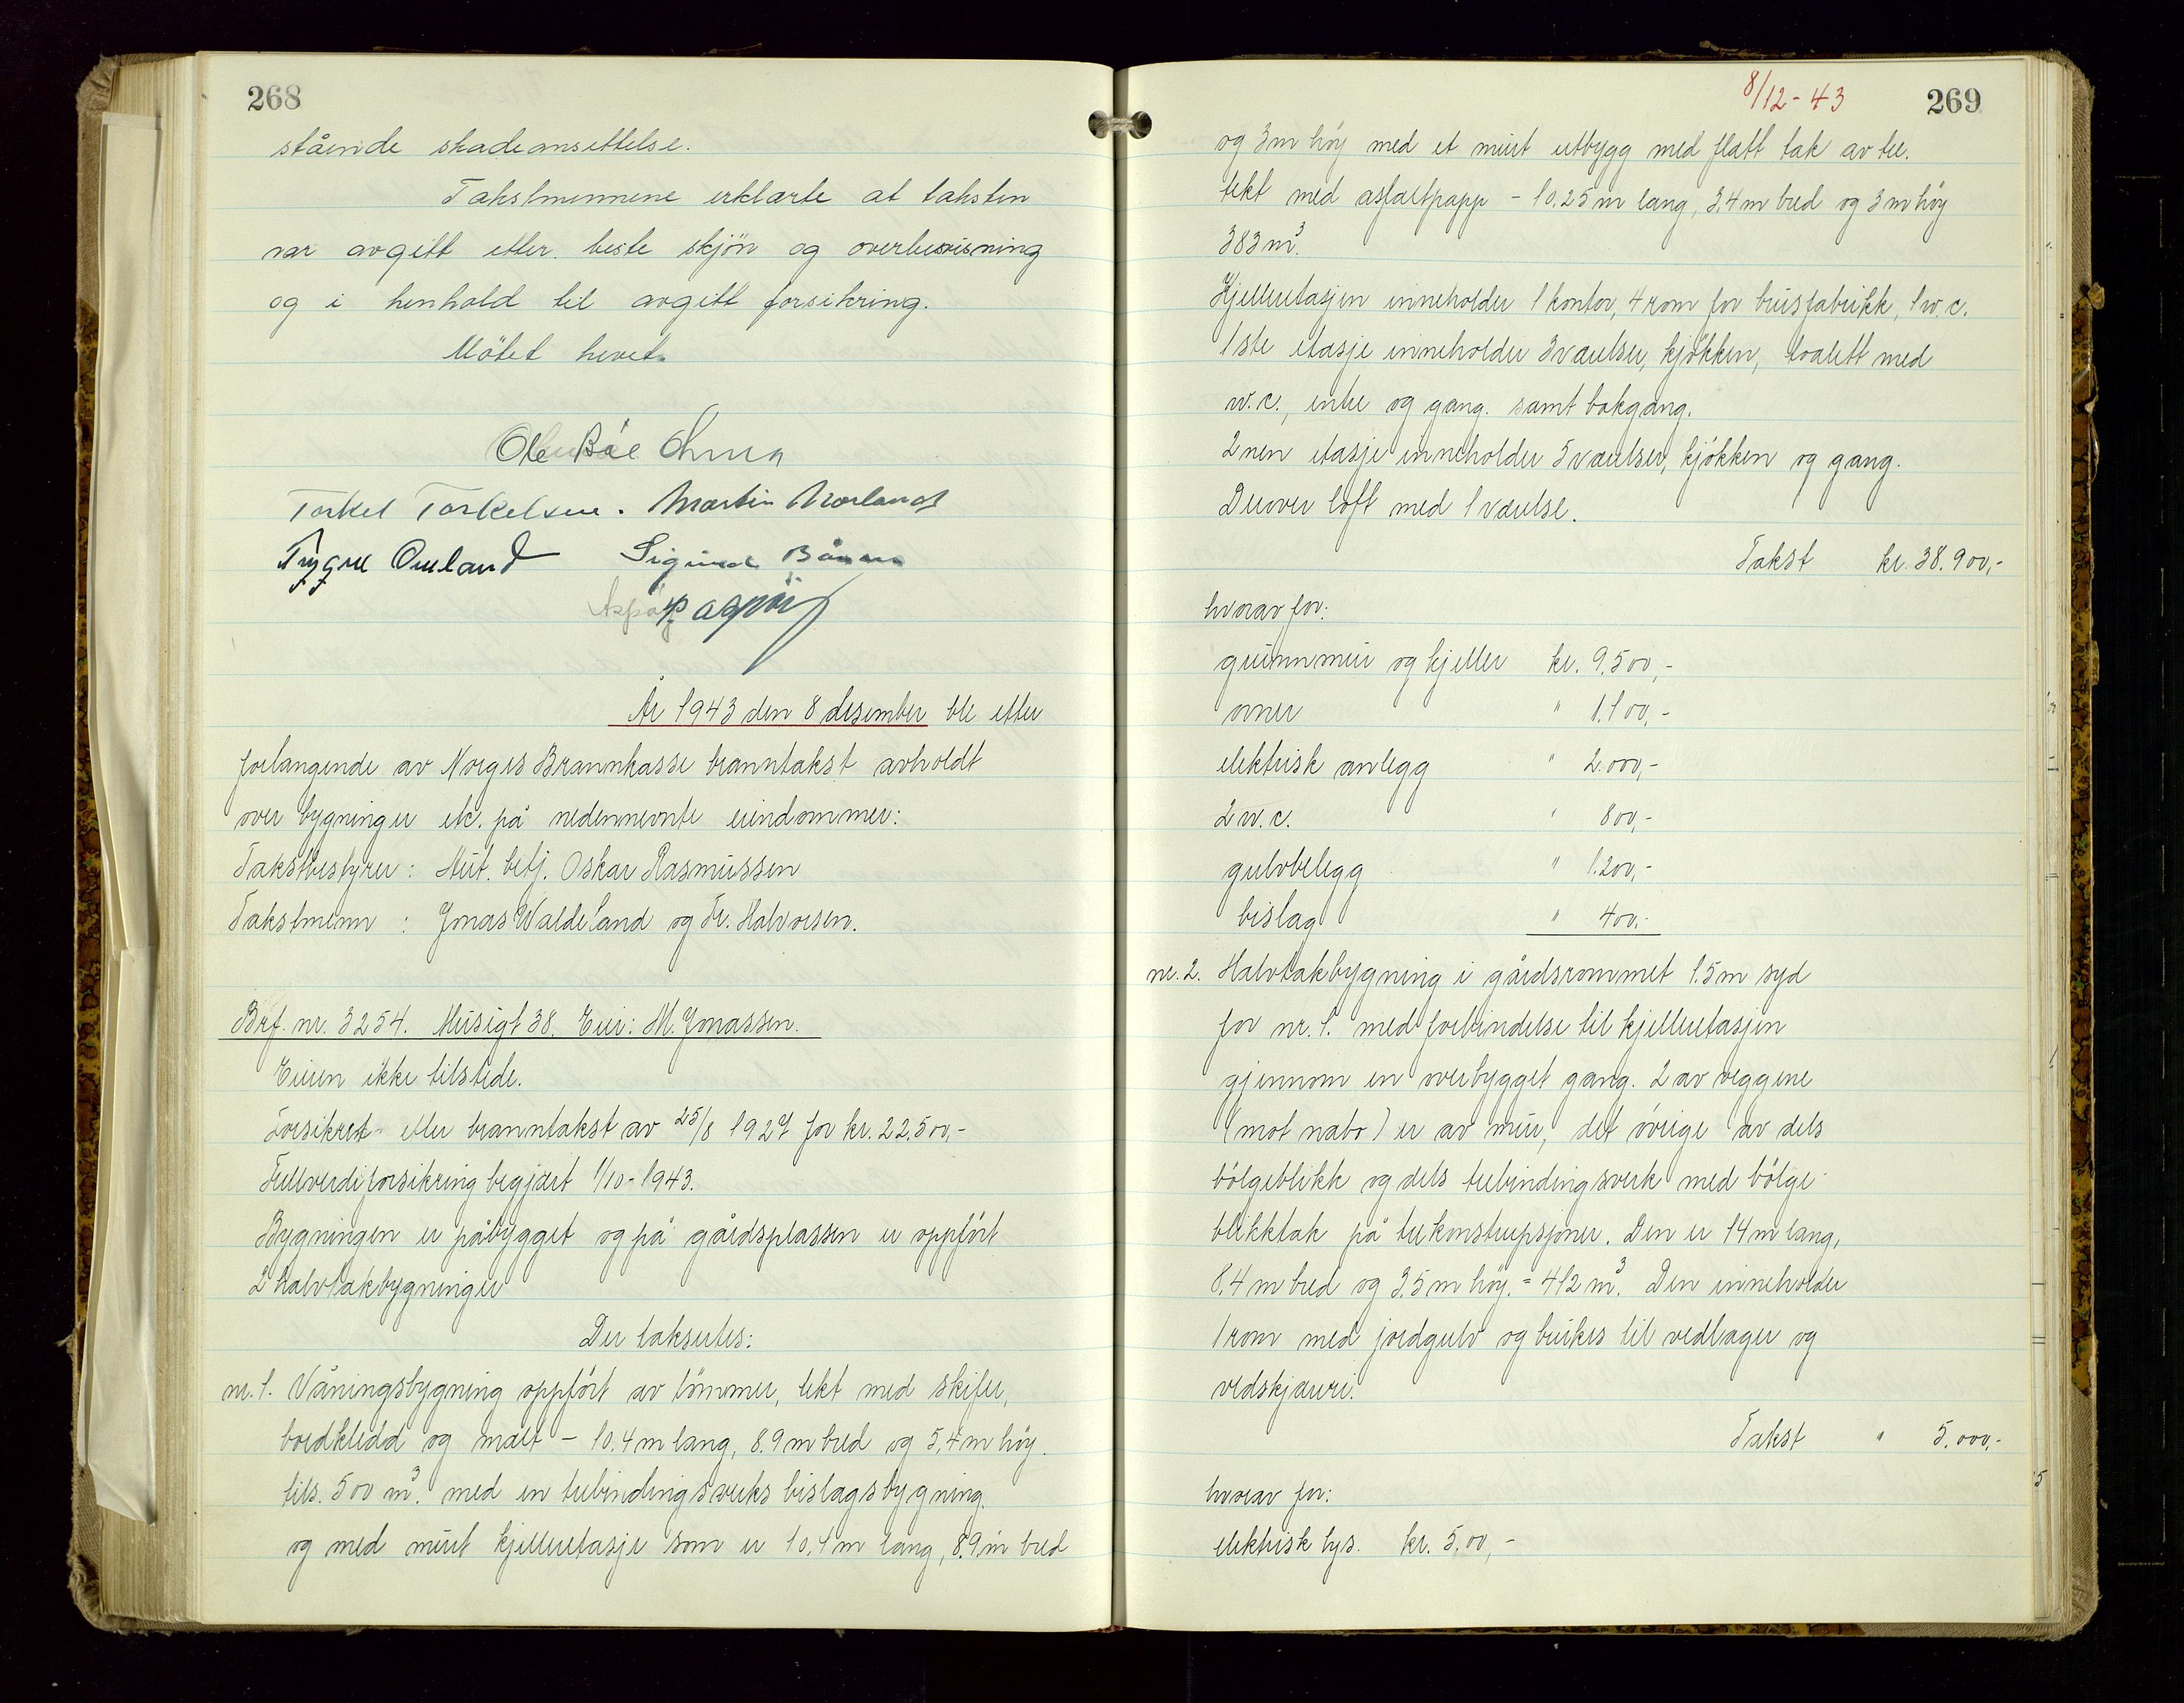 268
stående skadeansettelse.
Takstmennene erklærte at taksten
var avgitt etter beste skjön og overbevisning
og i henhold til avgitt forsikring.
Mötet hevet.
Ole Bøe
Torkel Torkelsen. Martin Norland
Trygve Omland Sigurd
År 1943 den 8 desember ble etter
forlangende av Norges Brannkasse branntakst avholdt
over bygninger etc. på nedennevnte eiendommer:
Takstbestyrer: Aut. betj. Oskar Rasmussen
Takstmenn : Jonas Waldeland og Fr. Halvorsen.
Brf. nr. 3254. Musegt 38. Eier: M. Jonassen.
Eieren ikke tilstede.
Forsikret etter branntakst av 25/8 1927 for kr. 22.500,-
Fullverdiforsikring begjært 1/10-1943.
Bygningen er påbygget og på gårdsplassen er oppfört
2 halvtakbygninger
Der takseres:
nr. 1. Våningsbygning oppfört av tömmer, tekt med skifer,
bordkledd og malt - 10.4 m lang, 8.9 m bred og 5,4 m höy.
tils. 500 m³. med en trebindingsverks bislagsbygning.
og med murt kjelleretasje som er 10,4 m lang, 8.9 m bred
8/12-43
269
og 3 m höy med et murt utbygg med flatt tak av tre.
tekt med asfaltpapp - 10.25 m lang, 3,4 m bred og 3 m höy
383 m³.
Kjelleretasjen inneholder 1 kontor, 4 rom for brusfabrikk, 1 w.c.
1ste etasje inneholder 3 værelser, kjökken, toalett med
w.c., entre og gang. samt bakgang.
2nen etasje inneholder 5 værelser, kjökken og gang.
Derover loft med 1 værelse.
Takst kr. 38.900,-
hvorav for:
grunnmur og kjeller kr. 9.500,-
ovner " 1.100,-
elektrisk anlegg " 2.000,-
2 w.c. " 800,-
gulvbelegg " 1.200,-
bislag " 400,-
nr. 2. Halvtakbygning i gårdsrommet 1.5 m syd
for nr. 1. med forbindelse til kjelleretasjen
gjennom en overbygget gang. 2 av veggene
(mot nabo) er av mur, det övrige av dels
bölgeblikk og dels trebindingsverk med bölge-
blikktak på trekonstrupsjoner. Den er 14 m lang,
8.4 m bred og 3.5 m höy. = 412 m³. Den inneholder
1 rom med jordgulv og brukes til vedlager og
vedskjæreri.
Takst " 5.000,-
hvorav for:
elektrisk lys. kr. 5,00,-